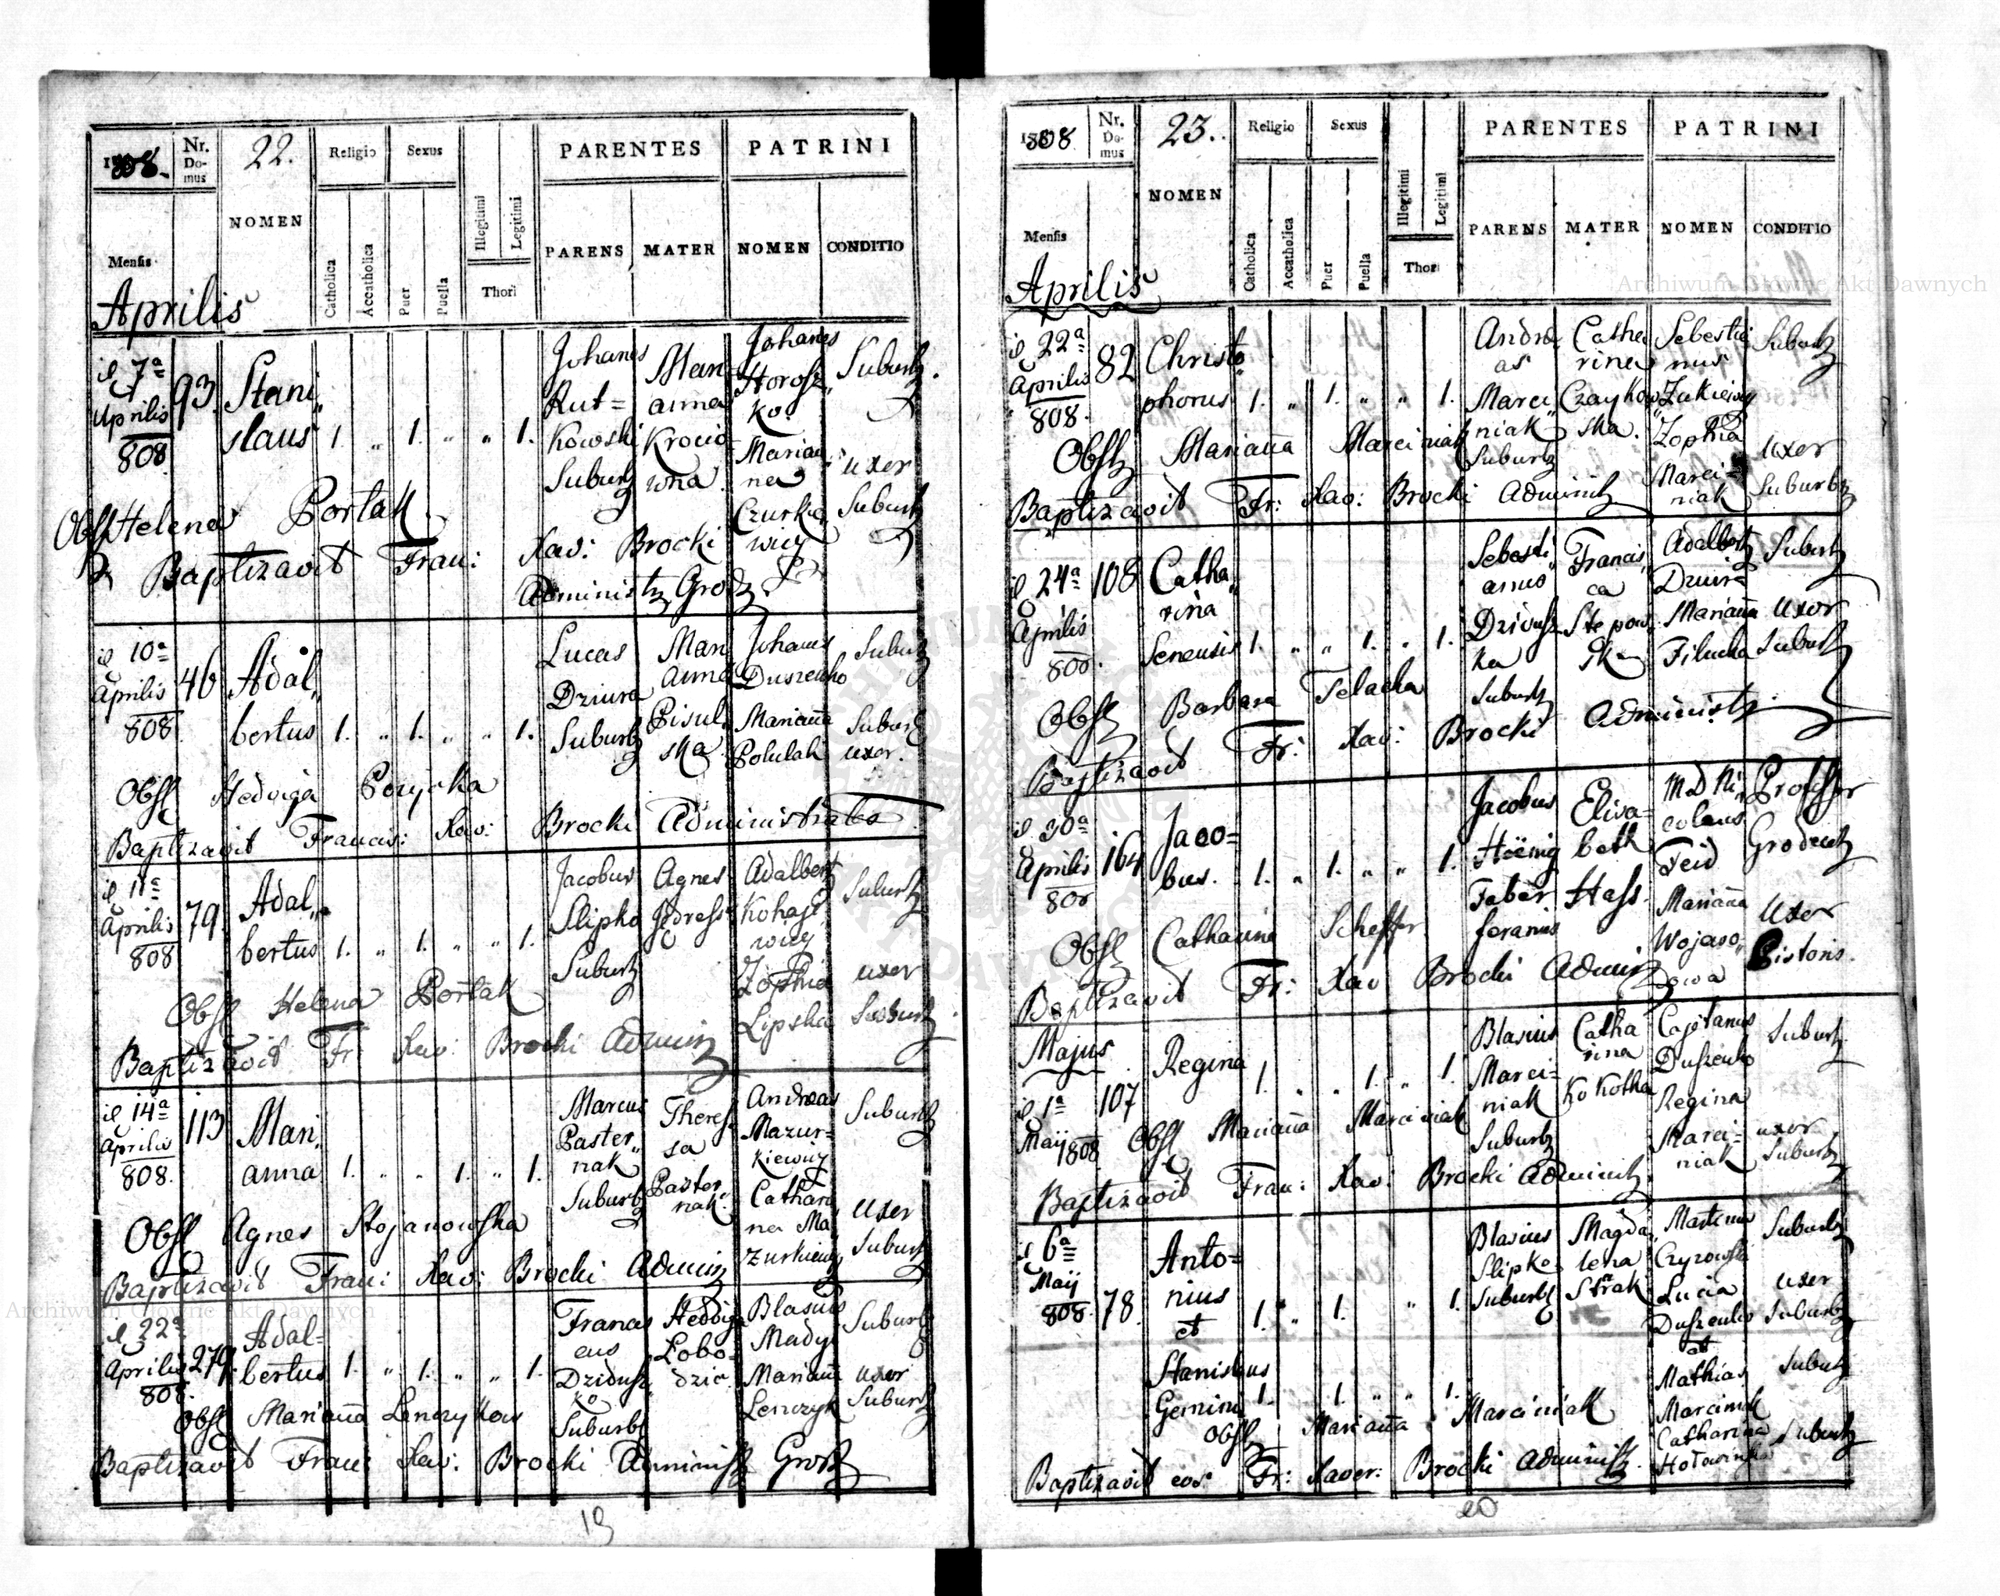 1808.
Nr. Domus
22.
Religio
Sexus
PARENTES
PATRINI
NOMEN
Illegitimi
Legitimi
PARENS
MATER
NOMEN
CONDITIO
Mensis
Catholica
Accatholica
Puer
Puella
Thori
Aprilis
7ª Aprilis 808
93.
Stanislaus
1. „ 1. „ „ 1.
Johanes Rutkowski Suburb
Marianna
Johanes Horoszko
Suburb.
Marianna
uxor Suburb
Obst Helena Portak
Baptizavit Fran: Xav: Brocki
Administr Grod
10ª Aprilis 808
46
Adalbertus
1. „ 1. „ „ 1.
Lucas Dziura Suburb
Marianna Pisulska
Johanes Duszenko
Suburb
Marianna Polulah
Suburb uxor.
Obst Hedviga
Baptizavit Francis: Xav: Brocki Administrator
11ª Aprilis 808
79.
Adalbertus
1. „ 1. „ „ 1.
Jacobus Slipko Suburb
Agnes
Adalbert
Suburb
Zophia Lipska
uxor Suburb
Obst Helena Portak
Baptizavit Fr: Xav: Brocki Admin
14ª Aprilis 808.
113
Marianna
1. „ „ 1. „ 1.
Marcus Pasternak Suburb
Theressa Pasternak
Andreas Mazurkiewicz
Suburb
Catharina Mazurkiewicz
uxor Suburb
Obst Agnes Stojanowska
Baptizavit Fran: Xav: Brocki Admin
22ª Aprilis 808.
279.
Adalbertus
1. „ 1. „ „ 1.
Franciscus Dziduszko Suburb
Hedviga
Blasius Madyj
Suburb
Mariana Lenczyk
uxor Suburb
Obst Marianna
Baptizavit Fran: Xav: Brocki Administ Grod
19
1808
Nr. Domus
23.
Religio
Sexus
PARENTES
PATRINI
NOMEN
Illegitimi
Legitimi
PARENS
MATER
NOMEN
CONDITIO
Mensis
Catholica
Accatholica
Puer
Puella
Thori
Aprilis
22ª Aprilis 808.
82
Christophorus
1. „ 1. „ „ 1.
Andreas Marciniak Suburb
Catherina Czaykowska.
Sebestianus
Suburb
Zophia Marciniak
uxor Suburb
Obst Marianna Marciniak
Baptizavit Fr: Xav: Brocki Administ
24ª Aprilis 808.
108
Catharina Senensis
1. „ „ 1. „ 1.
Sebastianus Dziduszka Suburb
Francisca
Adalbert Dziura
Suburb
Marianna
uxor Suburb
Obst Barbara Telacka
Baptizavit Fr: Xav: Brocki Administ
30ª Aprilis 808
164
Jacobus.
1. „ 1. „ „ 1.
Jacobus Höenig Faber
Elisabeth Hass.
M D Nicolaus Feid
Professor Grodect
Marianna
Uxor Pistoris.
Obst Catharina Scheffer
Baptizavit Fr: Xav Brocki Admin
Majus
1ª Maij 1808
107
Regina
1. „ „ 1. „ 1.
Blasius Marciniak Suburb
Catharina Kokotka
Capitanus Duszenko
Suburb
Regina Marciniak
uxor Suburb
Obst Marianna Marciniak
Baptizavit Fran: Xav: Brocki Administ
6ª Maij 808.
78.
Antonius et
1. „ 1. „ 1.
Blasius Slipko Suburb
Magdalena Strak
Martinus Czyzowski
Suburb
Lucia Duszenko
uxor Suburb
et
Stanislaus Gemini
1. 1. „ „ 1.
Mathias Marciniak
Suburb
Catharina
Suburb
Obst Marianna Marciniak
Baptizavit eos Fr: Xaver: Brocki Administ.
20
Archiwum Główne Akt Dawnych
Archiwum Główne Akt Dawnych